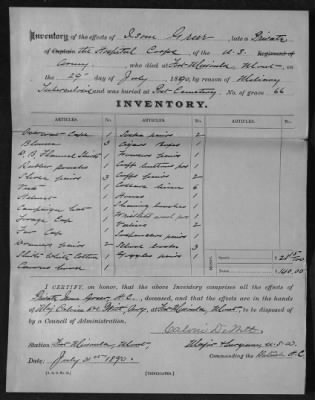 Inventory of the effects of Isom Greer, late a Private
of Captain the Hospital Corps, of the U.S. Regiment of
Army, who died at Fort Missoula, Mont., on
the 29th day of July, 1890, by reason of Miliary
Tuberculosis and was buried at Post Cemetery. No. of grave 66
INVENTORY.
ARTICLES. No. ARTICLES. No. ARTICLES. No.
Overcoat Cape 1
Blouses 3
D. B. Flannel Shirts
Rubber poncho 1
Shoes pairs 3
Vest 1
Helmet 1
Campaign hat 1
Forage Cap 1
Fur Cap 1
Drawers pairs 2
Shirts White Cotton
Canvas 1
Socks pairs 2
Cigars Boxes 1
Trowsers pairs 1
Cuff buttons pr 1
pairs 2
Collars linen 6
1
Shaving brushes 1
1
Valises 2
Suspenders pair 1
Shoe brushes 3
Goggles pairs 1
SPECIE,
NOTES, $
I CERTIFY, ON HONOR, that the above Inventory comprises all the effects of
Private Isom Greer, H.C., deceased, and that the effects are in the hands
of Maj. Calvin DeWitt, Surg., at Fort Missoula, Mont., to be disposed of
by a Council of Administration.
Calvin DeWitt
Major & Surgeon U.S.A.
Station: Fort Missoula, Mont.
Commanding the H.C.
Date: July 31st 1890.
[TRIPLICATES.]